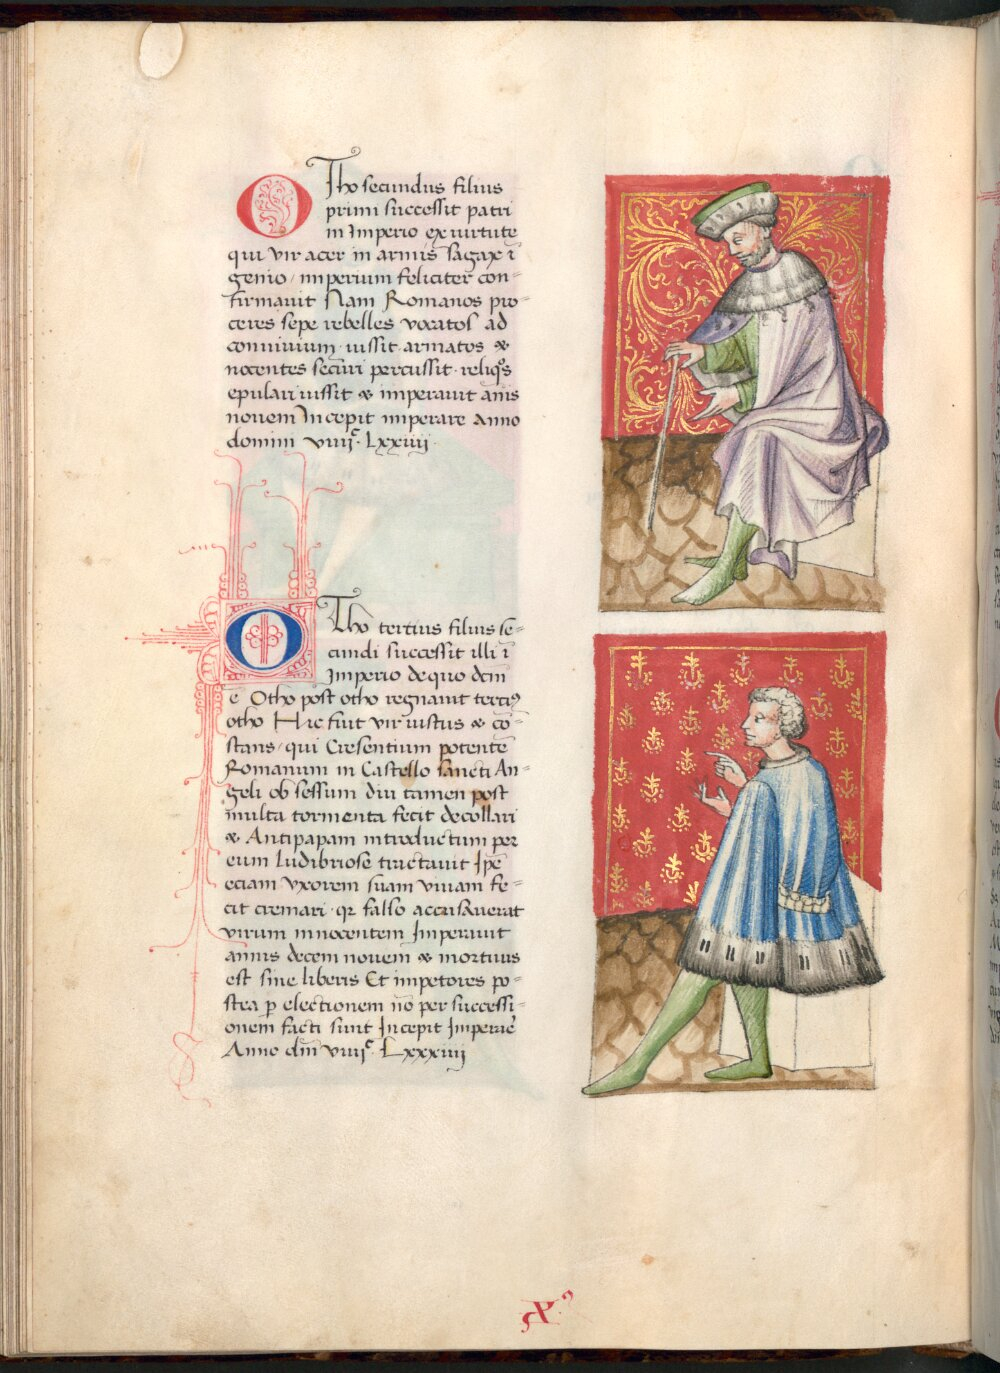 OTho secundus filius
primi successit patri
in Imperio ex uirtute
qui vir acer in armis sagax ī
genio / imperium feliciter con-
firmauit Nam Romanos pro-
ceres sepe rebelles vocatos ad
conuiuium iussit armatos &
nocentes securi percussit reliqͦs
epulari iussit & imperauit anīs
nouem Incepit imperare Anno
domini viiijᶜ. Lxxiiij
OTho tertius filius se-
cundi successit illi ī
Imperio de quo dcm̄
ē Otho post otho regnauit tercius
otho Hic fuit vir iustus & cō-
stans / qui Cresentium potentē
Romanum in Castello sancti An-
geli ob sessum diu tamen post
multa tormenta fecit decollari
& Antipapam introductum per
eum ludibriose tractauit Ipē
eciam vxorem suam viuam fe-
cit cremari qr falso accusauerat
virum innocentem Imperauit
annis decem nouem & mortuus
est sine liberis Et impetores po-
stea p electionem nō per successi-
onem facti sunt Incepit Imperarē
Anno dm̄ viiijᶜ. Lxxxiiij